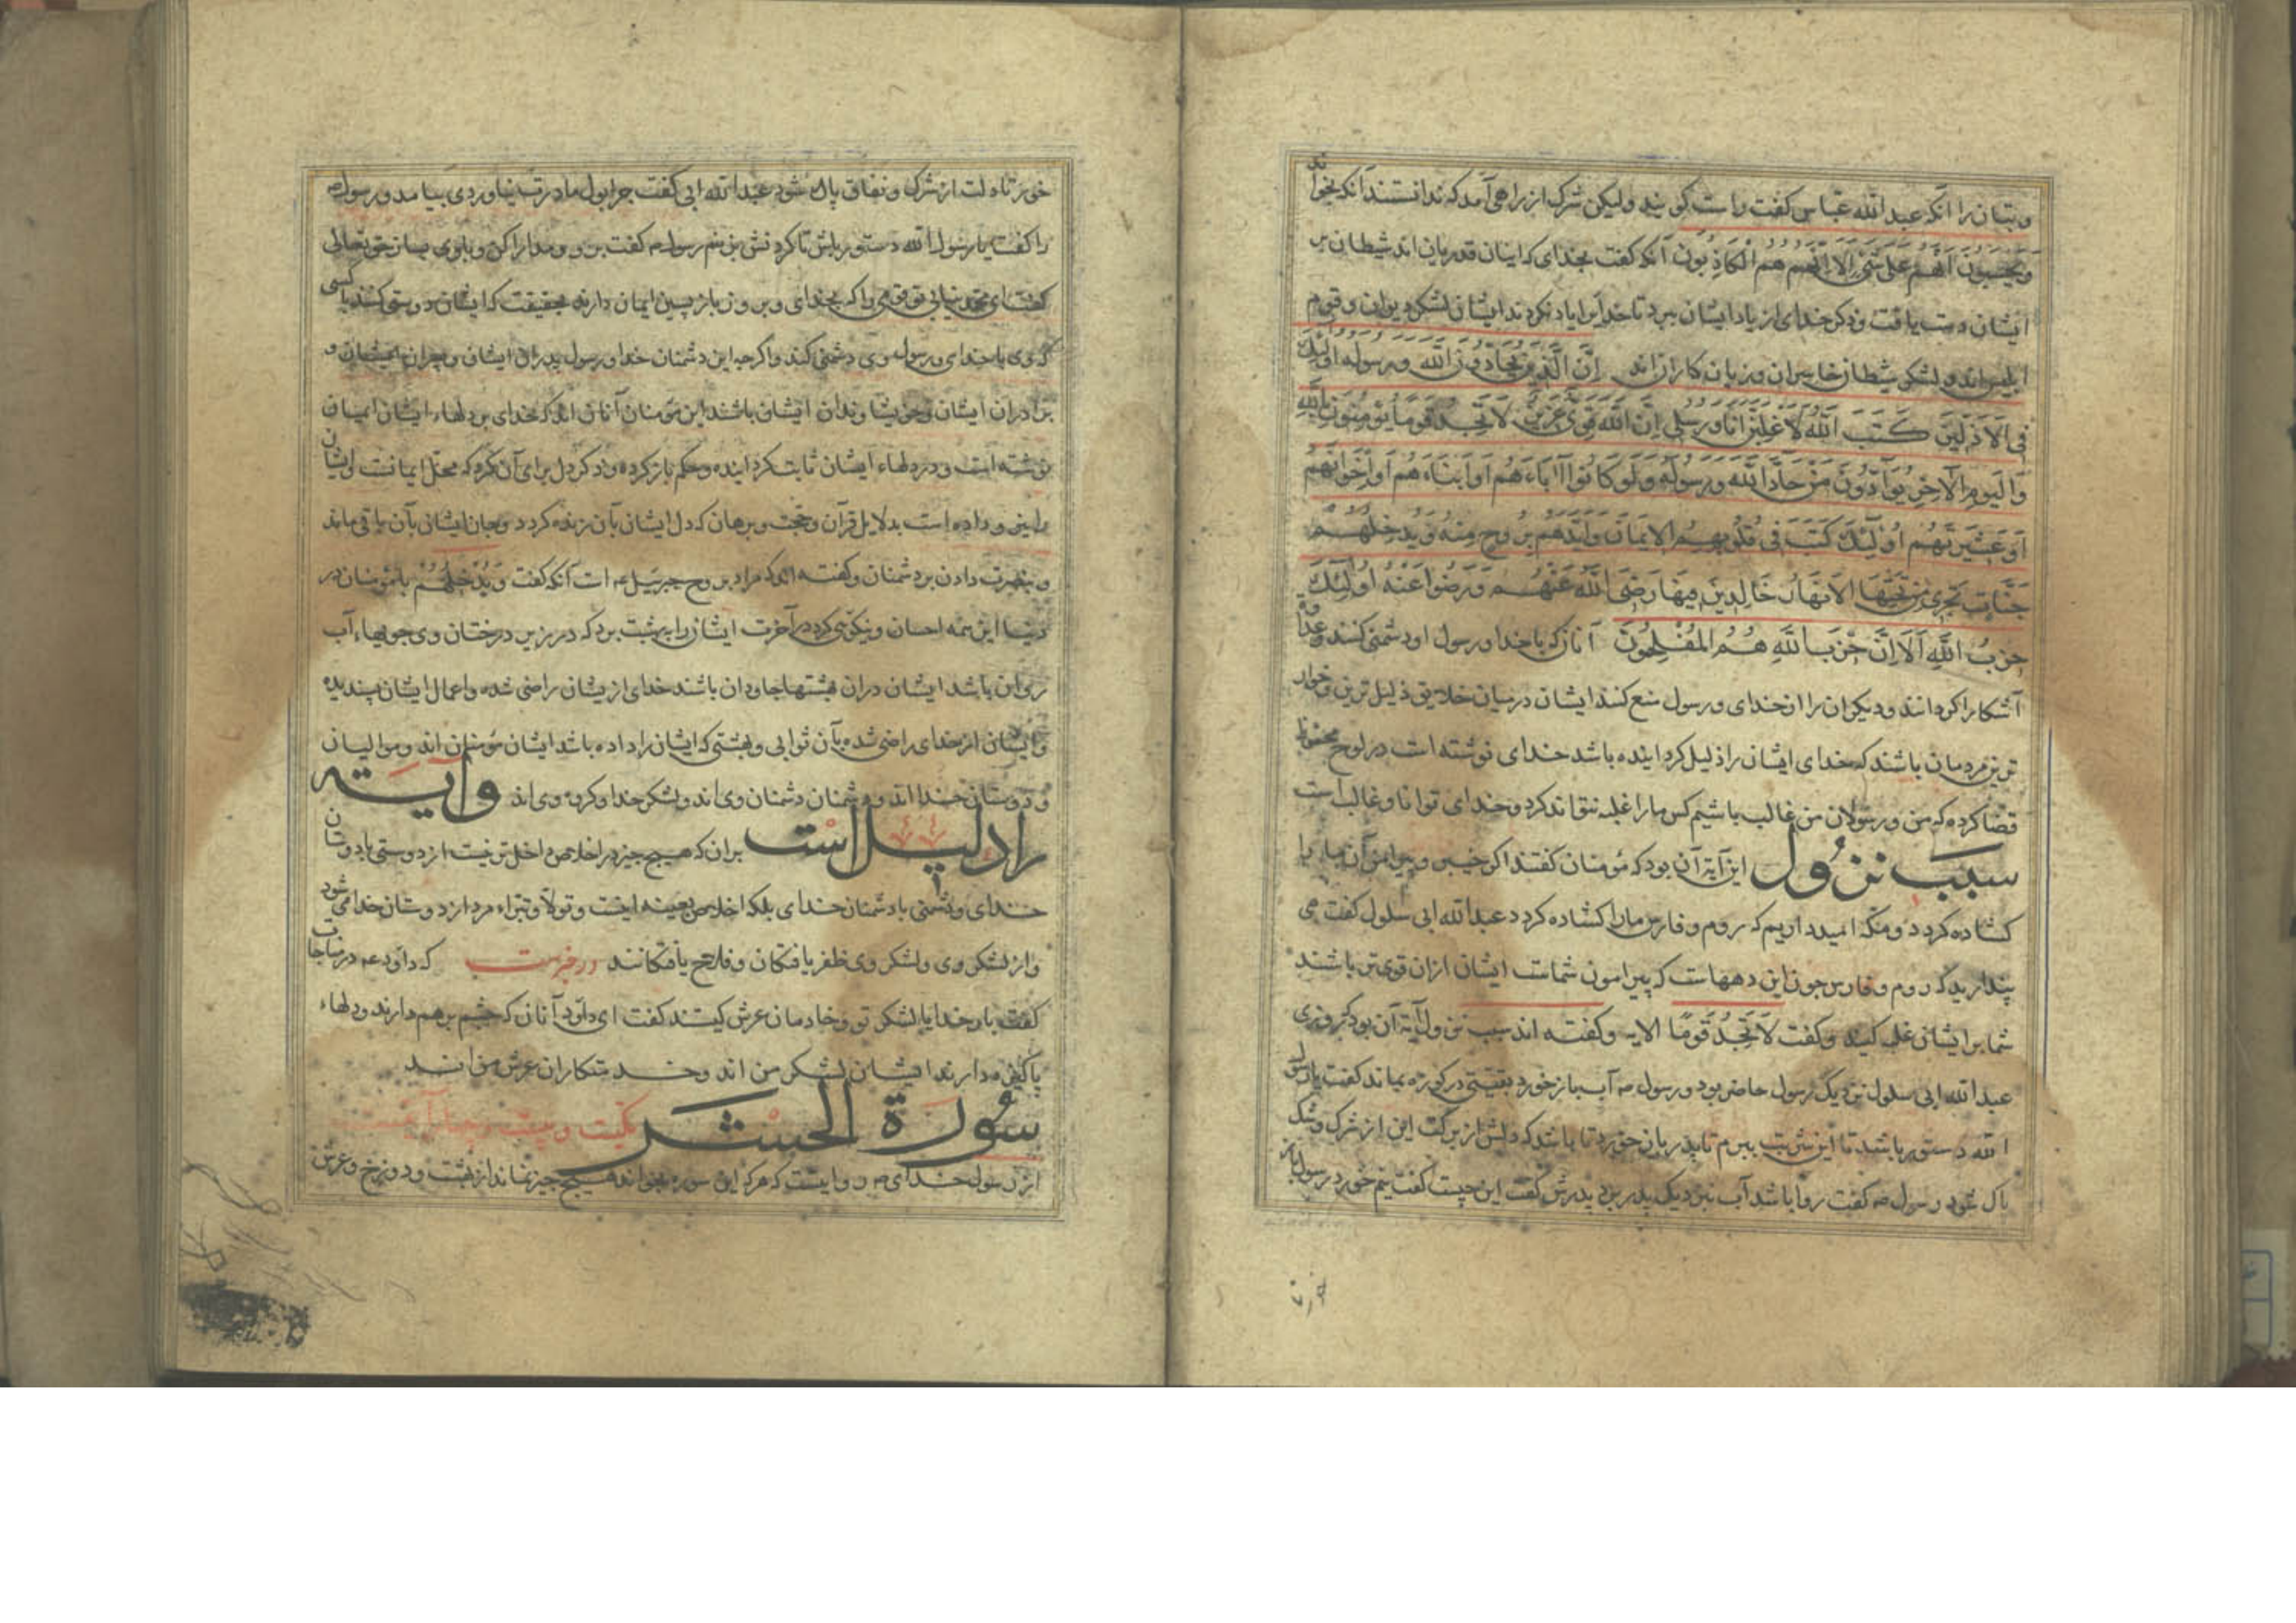 و بتان را آنکه عبدالله عباس کفت راست کویند ولیکن شرک از راهی آمد که ندانستند آنکه بخواند
وَیَحْسَبُونَ اَنَّهُم عَلی شَیْءٍ اَلا اِنَّهُم هُمُ الْکَاذِبُونَ آنکه کفت بخدای که اینان قدریان اند شیطان بر
ایشان دست یافت و ذکر خدای از یاد ایشان ببرد تا خدایرا یاد نکردند ایشان لشکر دیوان و قوم
ابلیس اند و لشکر شیطان خاسران و زیان کاران اند اِنَّ الَّذِینَ یُحَادُّونَ اللّه وَرَسُولَه اُولئِکَ
فِی الاَذَلِّینَ کَتَبَ اللّهُ لَاَغْلِبَنَّ اَنَا وَرُسُلِی اِنَّ اللّه قَوِیٌّ عَزِیزٌ لا تَجِدُ قَوماً یُؤمِنُونَ بِاللّهِ
وَالْیَومِ الآخِرِ یُوَآدُّونَ مَنْ حَادَّ اللّهَ وَرَسُولَهُ وَلَو کَانُوا آبَاءَهُم اَو اَبْنَاءَهُم اَو اِخْوَانَهُم
اَو عَشِیرَتَهُم اُولئِکَ کَتَبَ فِی قُلُوبِهِمُ الاِیمَانَ وَاَیَّدَهُم بِرُوحٍ مِنْهُ وَیُدْخِلُهُم
جَنَّاتٍ تَجْرِی مِن تَحْتِهَا الاَنْهَارُ خَالِدِینَ فِیهَا رَضِیَ اللّهُ عَنْهُم وَرَضُوا عَنْهُ اُولئِکَ
حِزْبُ اللّهِ اَلَا اِنَّ حِزْبَ اللّهِ هُمُ المُفْلِحُونَ آنان که با خدا و رسول او دشمنی کنند و عداوة
آشکارا کردانند و دیکران را از خدای و رسول منع کنند ایشان در میان خلایق ذلیل ترین و خوار
ترین مردمان باشند که خدای ایشان را ذلیل کردانیده باشد خدای نوشته است در لوح محفوظ
قضا کرده که من و رسولان من غالب باشیم کس ما را غلبه نتواند کرد و خدای توانا و غالب است
سبب نزول این آیة آن بود که مؤمنان کفتند اکر خیبر و پیرامن آن ما را
کشاده کردد و مکه امید داریم که روم و فارس ما را کشاده کردد عبدالله ابی سلول کفت می
پندارید که روم و فارس چون این دههاست که پیرامون شماست ایشان ازان قوی تر باشند
شما بر ایشان غلبه کنید و کفت لاَ تَجِدُ قَومًا الایه و کفته اند سبب نزول آیة آن بود که روزی
عبدالله ابی سلول نزدیک رسول حاضر بود و رسول صه آب باز خورد بقیتی در کوزه بماند کفت یا رسول
الله دستور باشد تا این شربت ببرم تا پدر بازخورد تا باشد که دلش از برکت این از شرک و شک
پاک شود رسول صه کفت روا باشد آب نزدیک پدر برد پدرش کفت این چیست کفت نیم خورد رسول باز
خور تا دلت از شرک و نفاق پاک شود عبدالله ابی کفت چرا بول مادرت نیاوردی بیامد و رسول صه
را کفت یا رسول الله دستور باش تا کردنش بزنم رسول صه کفت برو و مدارا کن و با وی بساز حق تعالی
کفت ای محمد نیابی تو قومی را که بخدای و بروز باز پسین ایمان دارند بحقیقت که ایشان دوستی کنند با کسی
که وی با خدای و رسول وی دشمنی کند و اکر چه این دشمنان خدا و رسول پدران ایشان و پسران ایشان و
برادران ایشان و خویشاوندان ایشان باشند این مؤمنان آنان اند که خدای بر دلهاء ایشان ایمان
نوشته است و در دلهاء ایشان ثابت کردانیده و حکم باز کرده و ذکر دل برای آن کرد که محل ایمانست و ایشان
را نیرو داده است بدلایل قرآن و حجت و برهان که دل ایشان بآن زنده کردد و جان ایشان بآن باقی ماند
و بنصرت دادن بر دشمنان و کفته اند که مراد بروح جبرئیل عم است آنکه کفت وَیُدْخِلُهُم با مؤمنان در
دنیا این همه احسان و نیکویی کرد در آخرت ایشان را ببهشت برد که در زیر درختان وی جویهاء آب
روان باشد ایشان دران بهشتها جاودان باشند خدای از یشان راضی شده و اعمال ایشان پسندیده
و ایشان از خدای راضی شده بآن ثوابی و بهشتی که ایشان را داده باشد ایشان مؤمنان اند و موالیان
و دوستان خدا اند و دشمنان دشمنان وی اند و لشکر خدا و کروه وی اند و آیته
را دلیل است بران که هیچ چیز در اخلاص داخل تر نیست از دوستی با دوستان
خدای و دشمنی با دشمنان خدای بلکه اخلاص بعینه اینست و تولا و تبراء مرد از دوستان خدا می شود
و از لشکر وی و لشکر وی ظفر یافتکان و فلاح یافتکانند در خبرست که داود عم در مناجات
کفت بار خدایا لشکر تو و خادمان عرش کیستند کفت ای داود آنان که چشم برهم دارند و دلهاء
پاکیزه دارند ایشان لشکر من اند و خدمتکاران عرش من اند
سُورَة الحَشر
از رسول خدای صه روایتست که هر که این سوره بخواند هیچ چیز نماند از بهشت و دوزخ و عرش